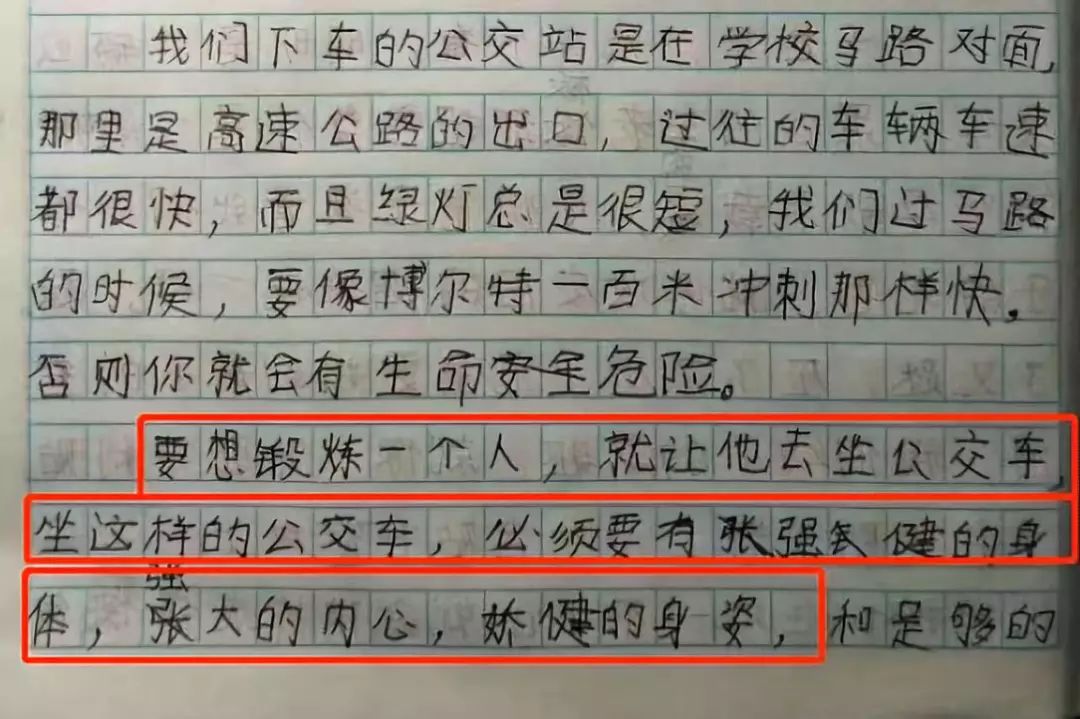 我们下车的公交站是在学校马路对面,
那里是高速公路的出口,过往的车辆车速
都很快,而且绿灯总是很短,我们过马路
的时候,要像博尔特一百米冲刺那样快。
否则你就会有生命安全危险。
要想锻炼一个人,就让他去坐公交车,
坐这样的公交车,必须要有强健的身
强
体,张大的内心,娇健的身姿,和足够的